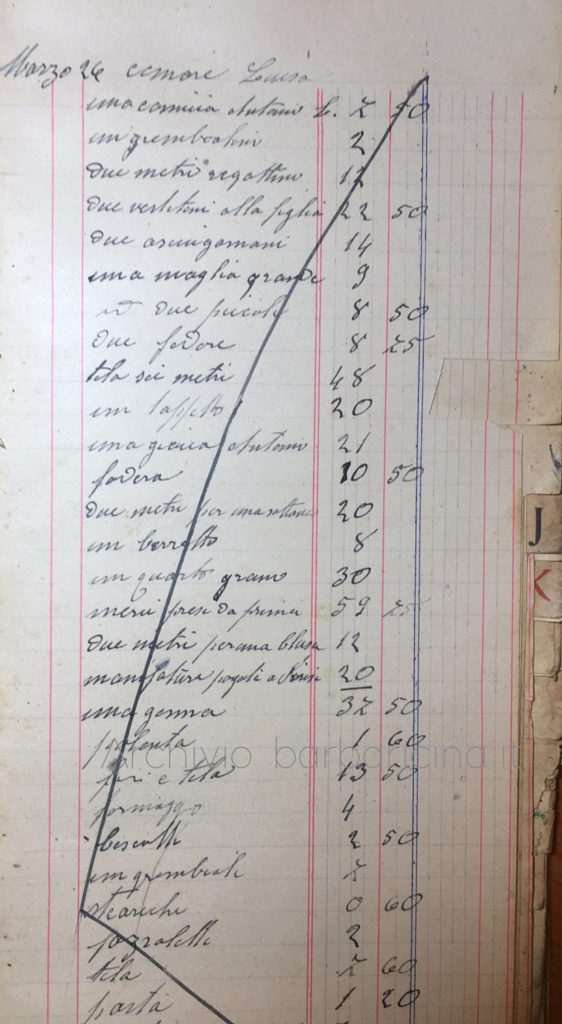 Marzo 26 Luisa
una camicia L. 7 50
un grembialini 2
due metri regattino 12
due vestitini alla figlia 22 50
due asciugamani 14
una maglia grande 9
id due piccole 8 50
due fodere 8 75
tela sei metri 48
un tappeto 20
una giacca 21
fodera 10 50
due metri per una sottana 20
un berretto 8
un quarto grano 30
merci presi da prima 59 75
due metri per una blusa 12
manifattura pagata a 20
una 37 50
polenta 1 60
e tela 13 50
formaggo 4
biscotti 2 50
un grembiale 7
steariche 0 60
fazzoletti 2
tela 7 60
pasta 1 20
archivio barbaricina.it
J
K